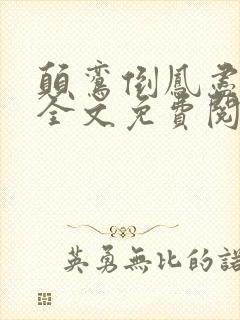 顛鸞倒鳳
全文免費閱
英勇無比的諾